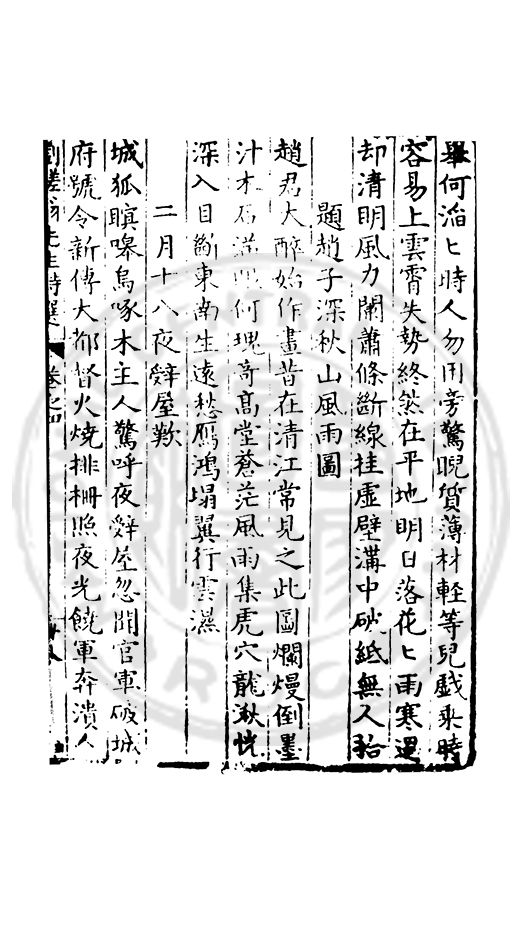 舉何滔〻時人勿用旁驚睨質薄材輕等兒戲乘時
容易上雲霄失勢終然在平地明日落花〻雨寒過
却清明風力闌蕭條斷線挂虛壁溝中破紙無人拾
題趙子深秋山風雨圖
趙君大醉始作畫昔在清江常見之此圖爛熳倒墨
汁木石滿 何瑰奇高堂蒼茫風雨集虎穴龍湫恍
深入目斷東南生遠愁鴈鴻塌翼行雲濕
二月十八夜辥屋歎
城狐瞑嗥烏啄木主人驚呼夜辥屋忽聞官軍破城
府號令新傳大都督火燒排柵照夜光饒軍奔潰人
劉槎翁先生詩選 卷之四